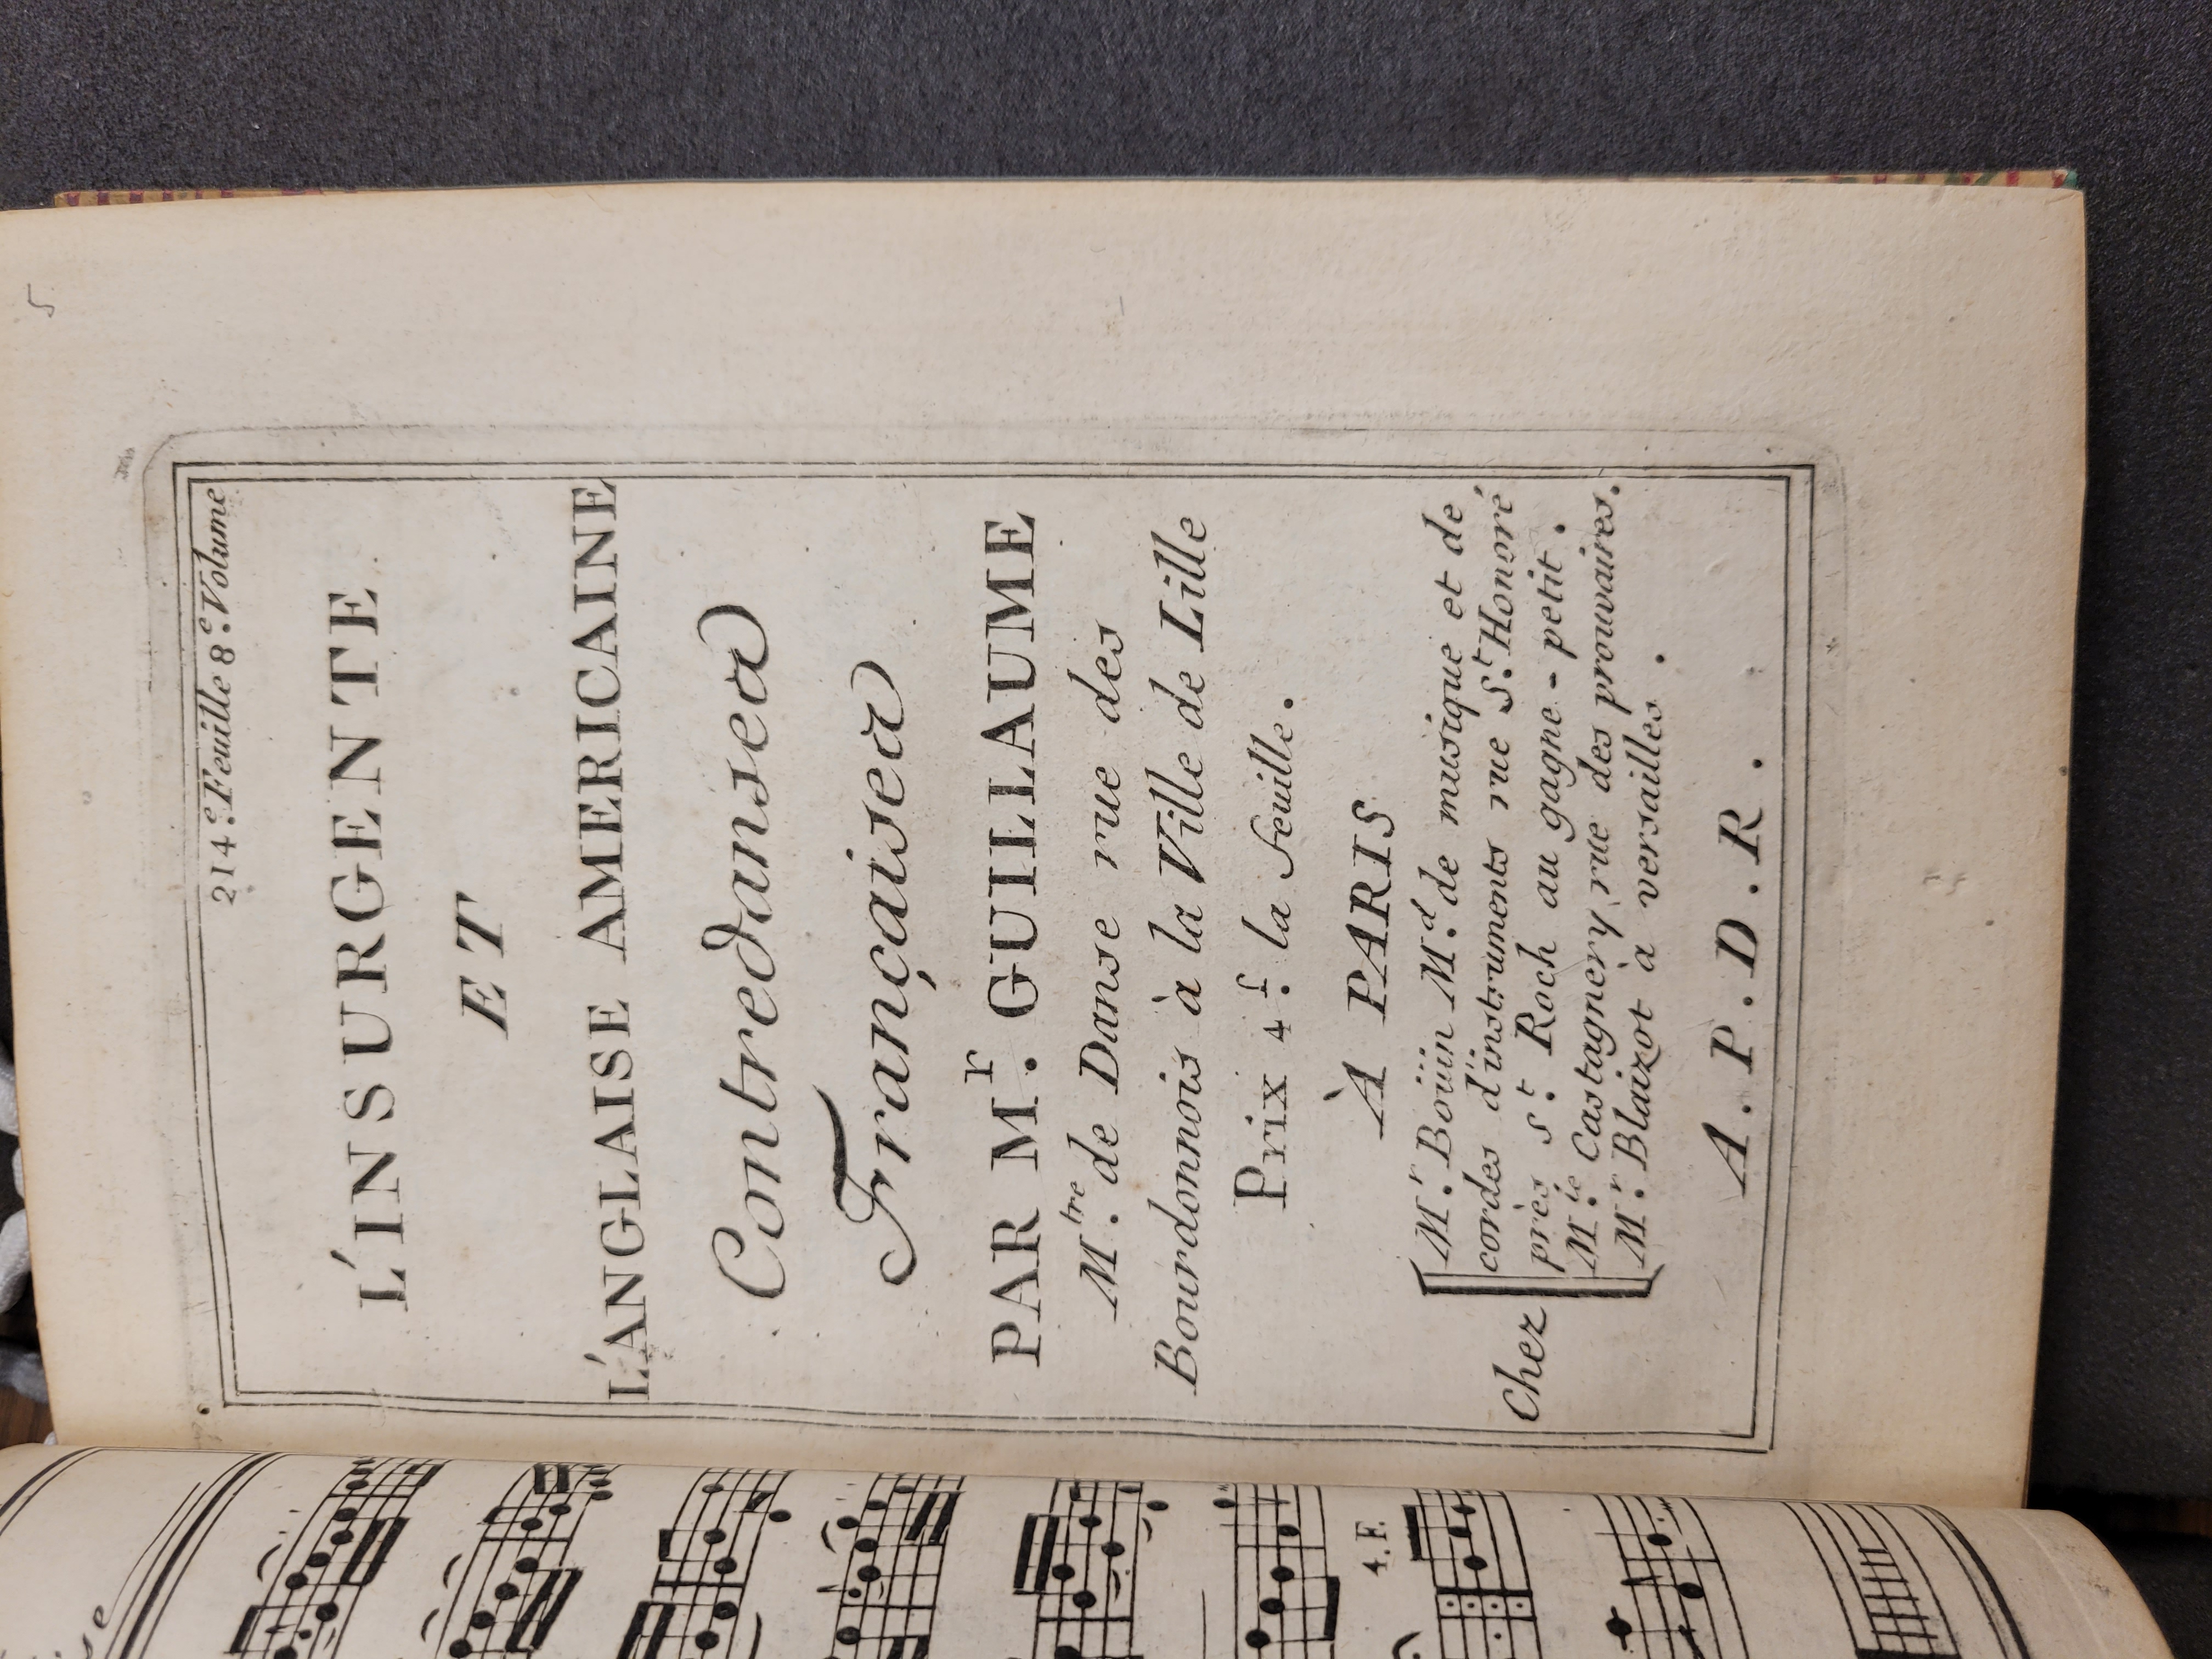 5
214.e Feuille 8.e Volume
L'INSURGENTE
ET
L'ANGLAISE AMERICAINE
Contredanses
Françaises
PAR M.r GUILLAUME
M.tre de Danse rue des
Bourdonnois à la Ville de Lille
Prix 4.f la feuille.
À PARIS
Chez
M.r Boüin M.d de musique et de
cordes d'instruments rue S.t Honoré
près S.t Roch au gagne-petit.
M.le Castagnery, rue des prouvaires.
M.r Blaizot à versailles.
A.P.D.R.
4.F.